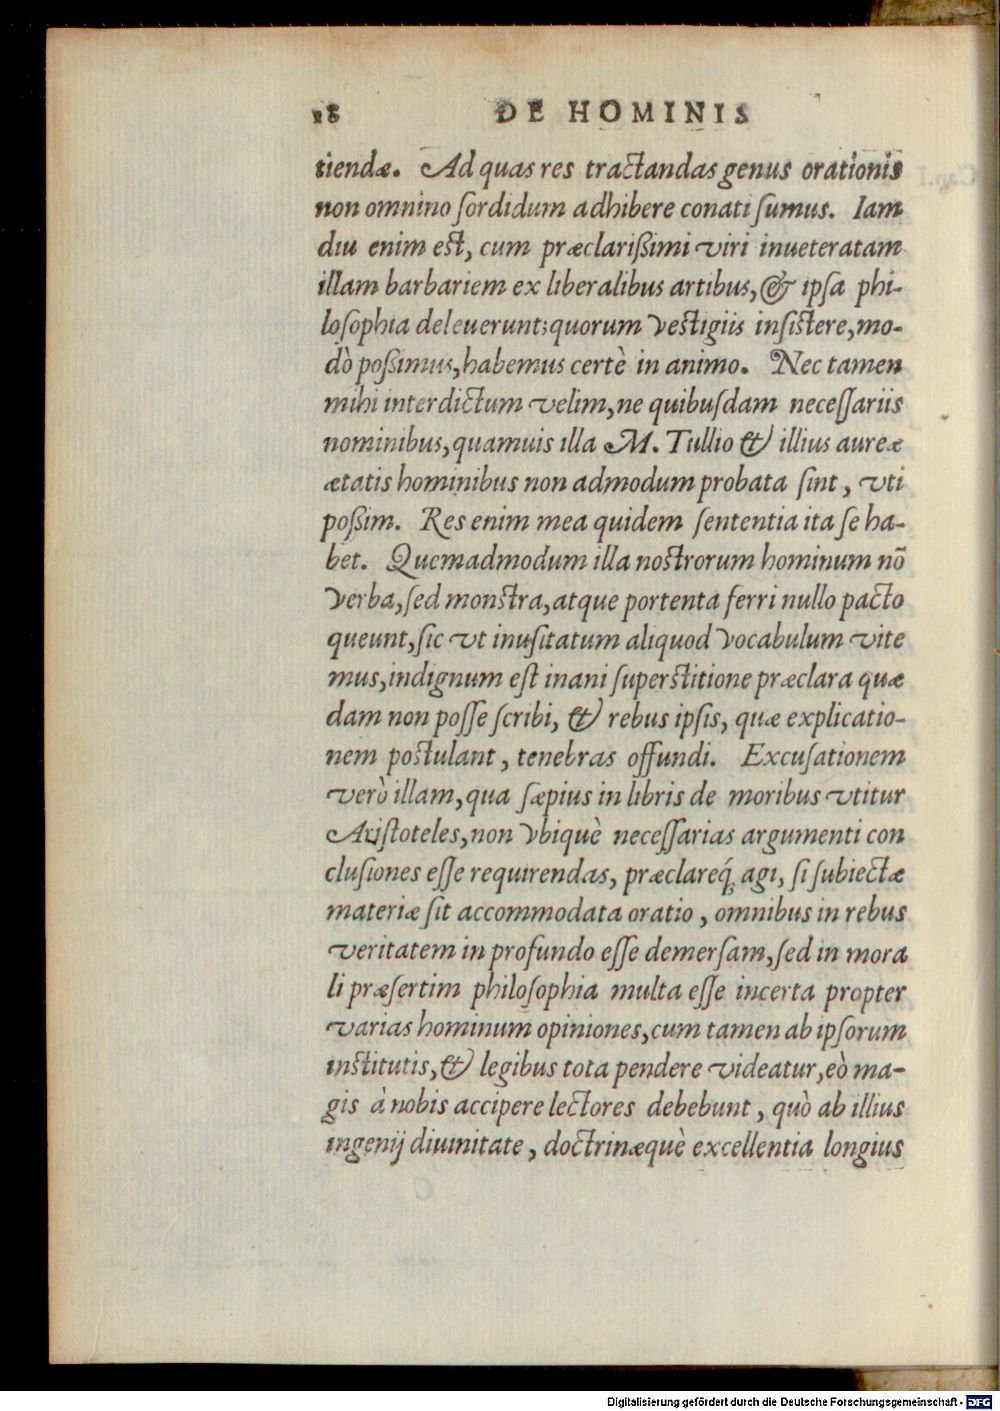 18 DE HOMINIS
tiendæ. Ad quas res tractandas genus orationis
non omnino ſordidum adhibere conati ſumus. Iam
diu enim est, cum præclarißimi viri inueteratam
illam barbariem ex liberalibus artibus, & ipſa phi-
loſophia deleuerunt; quorum vestigiis inſistere, mo-
dò poßimus, habemus certè in animo. Nec tamen
mihi interdictum velim, ne quibuſdam neceſſariis
nominibus, quamuis illa M. Tullio & illius aureæ
ætatis hominibus non admodum probata ſint, vti
poßim. Res enim mea quidem ſententia ita ſe ha-
bet. Quemadmodum illa nostrorum hominum nõ
verba, ſed monstra, atque portenta ferri nullo pacto
queunt, ſic vt inuſitatum aliquod vocabulum vite
mus, indignum eſt inani ſuperstitione præclara quæ
dam non poſſe ſcribi, & rebus ipſis, quæ explicatio-
nem postulant, tenebras offundi. Excuſationem
verò illam, qua ſæpius in libris de moribus vtitur
Ariſtoteles, non vbiquè neceſſarias argumenti con
cluſiones eſſe requirendas, præclareq́; agi, ſi ſubiectæ
materiæ ſit accommodata oratio, omnibus in rebus
veritatem in profundo eſſe demerſam, ſed in mora
li præſertim philoſophia multa eſſe incerta propter
varias hominum opiniones, cum tamen ab ipſorum
institutis, & legibus tota pendere videatur, eò ma-
gis à nobis accipere lectores debebunt, quò ab illius
ingenij diuinitate, doctrinæquè excellentia longius
Digitalisierung gefördert durch die Deutsche Forschungsgemeinschaft - DFG